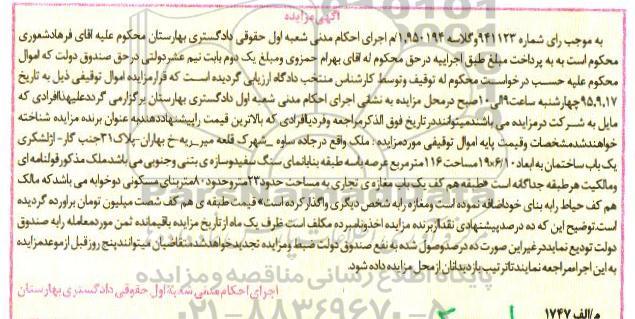 آگهی مزایده
به موجب رای شماره ۹۴۱۱۲۳ وکلاسه ۱٫۹۵۰۱۹۴/م اجرای احکام مدنی شعبه اول حقوقی دادگستری بهارستان محکوم علیه آقای فرهادشعوری
محکوم است به به پرداخت مبلغ طبق اجراییه درحق محکوم له آقای بهرام حمزوی ومبلغ یک دوم بابت نیم عشردولتی درحق صندوق دولت که اموال
محکوم علیه حسب درخواست محکوم له توقیف وتوسط کارشناس منتخب دادگاه ارزیابی گردیده است که قرارمزایده اموال توقیفی ذیل به تاریخ
۹۵٫۹٫۱۷چهارشنبه ساعت۹الی۱۰صبح درمحل مزایده به نشانی اجرای احکام مدنی شعبه اول دادگستری بهارستان برگزارمی گرددعلیهذاافرادی که
مایل به شرکت درمزایده می باشندمیتواننددرتاریخ فوق الذکرمراجعه وفردیاافرادی که بالاترین قیمت راپیشنهاددهندبه عنوان برنده مزایده شناخته
خواهندشدمشخصات وقیمت پایه اموال توقیفی موردمزایده : ملک واقع درجاده ساوه _شهرک قلعه میر_ به خ بهاران-پلاک۳۱جنب گاز- ازلشکری
یک باب ساختمان به ابعاد۱۹۰۶/۱۰مساحت۱۱۶مترمربع عرصه باسه طبقه بنابانمای سنگ سفیدوسازه ی بتنی وجنوبی می باشدملک مذکورقولنامه ای
ومالکیت هرطبقه جداگانه است «طبقه هم کف یک باب مغازه ی تجاری به مساحت حدود۲۳متروحدود۸۰متربنای مسکونی دوخوابه می باشدکه مالک
هم کف حیاط رابه بنای خوداضافه نموده است ومغازه رابه شخص دیگری واگذارکرده است» قیمت طبقه ی هم کف شصت میلیون تومان براورده گردیده
است.توضیح این که ده درصدپیشنهادی نقدازبرنده مزایده اخذوبرنده مکلف است ظرف یک ماه ازتاریخ مزایده باقیمانده ثمن موردمعامله رابه صندوق
دولت تودیع نمایددرغیراین صورت ده درصدوصول شده به نفع صندوق دولت ضبط ومزایده تجدیدخواهدشدمتقاضیان میتوانندپنج روزقبل ازموعدمزایده
به این اجرامراجعه نمایندتاترتیب بازدیدانان ازمحل مزایده داده شود.
اجرای احکام مدنی شعبه اول حقوقی دادگستری بهارستان
م/الف ۱۷۴۷
پایگاه اطلاع رسانی مناقصه و مزایده
۰۲۱-۸۸۳۴۹۶۷۰-۵